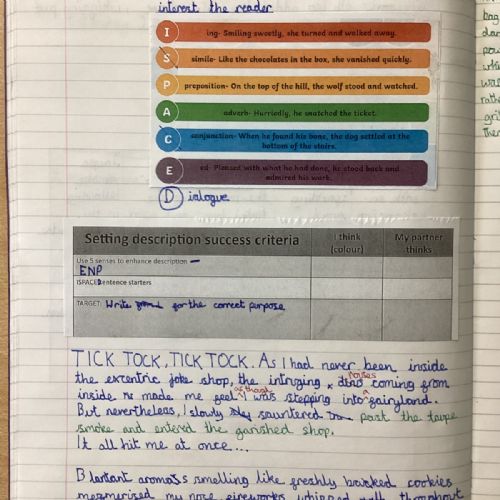 interest the reader
I ing- Smiling sweetly, she turned and walked away.
S simile- Like the chocolates in the box, she vanished quickly.
P preposition- On the top of the hill, the wolf stood and watched.
A adverb- Hurriedly, he snatched the ticket.
C conjunction- When he found his bone, the dog settled at the bottom of the stairs.
E ed- Pleased with what he had done, he stood back and admired his work.
D ialogue
Setting description success criteria I think (colour) My partner thinks
Use 5 senses to enhance description
ENP
ISPACED sentence starters
TARGET: Write for the correct purpose
TICK TOCK, TICK TOCK. As I had never been inside
the excentric joke shop, the intruging noises coming from
inside made me feel as though I was stepping into a fairyland.
But nevertheless, I slowly sauntered past the taupe
smoke and entered the garished shop.
It all hit me at once...
Blantant aromas smelling like freshly baked cookies
mesmerised my nose, fireworks whipped throughout